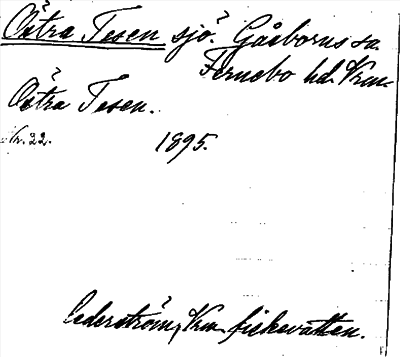 Östra Tesen sjö. Gåsborns sn
Fernebo hd. Vrm.
Östra Tesen.
Nr. 22. 1895.
Cederström, Vrm. fiskevatten.